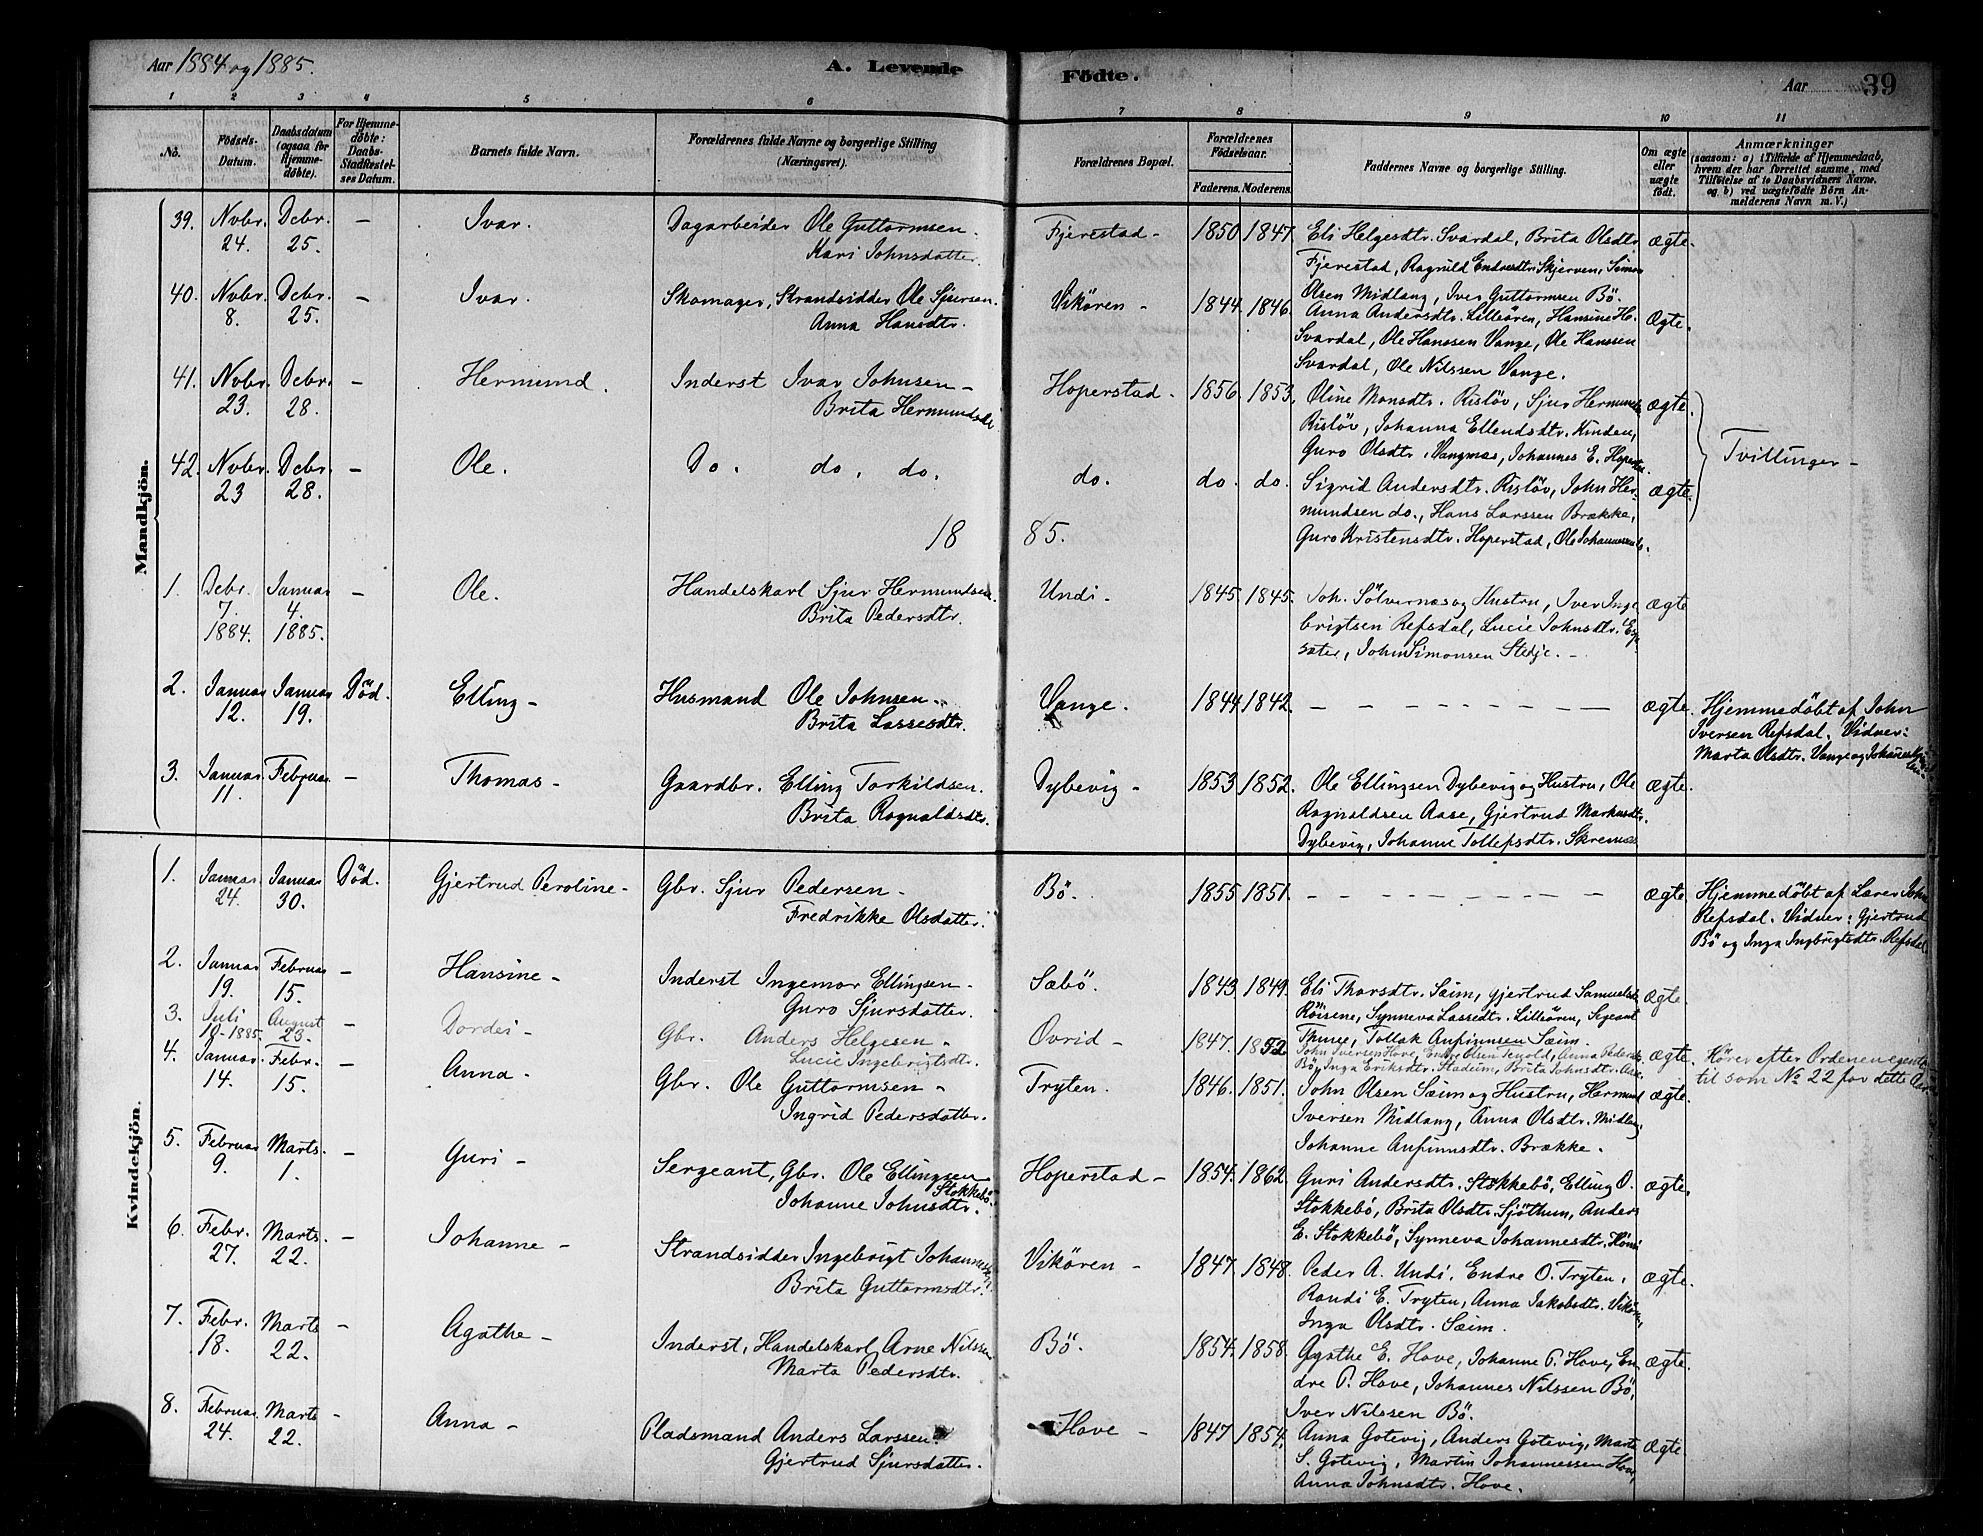 Aar 1884 og 1885. A. Levende Födte. Aar 39
1 2 3 4 5 6 7 8 9 10 11
No. Födsels-Datum. Daabsdatum (ogsaa for Hjemmedøbte). For Hjemmedøbte: Daabs-Stadfæstelses Datum. Barnets fulde Navn. Forældrenes fulde Navne og borgerlige Stilling (Næringsvei). Forældrenes Bopæl. Forældrenes Födselsaar. Faderens. Moderens. Faddernes Navne og borgerlige Stilling. Om ægte eller uægte født. Anmærkninger (saasom: a) i Tilfælde af Hjemmedaab, hvem der har forrettet samme, med Tilføielse af to Daabsvidners Navne, og b) ved uægtefödte Börn Anmelderens Navn m. V.)
Mandkjön.
39. Novbr. 24. Decbr. 25. – Ivar. Dagarbeider Ole Guttormsen. Fjerestad – 1850 1847. Eli Helgesdtr. Svardal, Brita Olsdtr. ægte
Kari Johnsdatter. Fjerestad, Ragnild Endresdtr. Skjerven, Simon
Olsen Midlang, Iver Guttormsen Bö.
40. Novbr. 8. Decbr. 25. – Ivar. Skomager, Strandsidder Ole Sjursen. Vikören – 1844. 1846. Anna Andersdtr. Lilleören, Hansine H. ægte.
Anna Hansdtr. Svardal, Ole Hanssen Vange, Ole Hanssen
Svardal, Ole Nilssen Vange.
41. Novbr. 23. Decbr. 28. – Hermund. Inderst Ivar Johnsen – Hoperstad. 1856. 1853. Oline Monsdtr. Rislöv, Sjur Hermunds. ægte.
Brita Hermundsdtr. Rislöv, Johanna Ellendsdtr. Kinden,
Guro Olsdtr. Vangmas, Johannes E. Hoperstad.
42. Novbr. 23 Decbr. 28. – Ole. Do. do. do. do. do. do. Sigrid Andersdtr. Rislöv, John Her- ægte. Tvillinger –
mundsen do., Hans Larssen Brække,
Guro Kristensdtr. Hoperstad, Ole Johannessen do.
1885.
1. Decbr. 7. 1884. Januar 4. 1885. – Ole. Handelskarl Sjur Hermundsen. Undi – 1845. 1845. Joh. Sölvernæs og Hustru, Iver Inge- ægte
Brita Pedersdtr. brigtsen Refsdal, Lucie Johnsdtr.
John Simonsen Stedje. –
2. Januar 12. Januar 19. Död. Elling – Husmand Ole Johnsen – Vange. 1844 1842. – – – – – – – – ægte. Hjemmedöbt af John
Brita Lassesdtr. Iversen Refsdal. Vidner:
Marta Olsdtr. Vange og Johannes
3. Januar 11. Februar – Thomas – Gaardbr. Elling Torkildsen. Dybevig – 1853 1852. Ole Ellingsen Dybevig og Hustru, Ole ægte.
Brita Ragnaldsdtr. Ragnaldsen Aase, Gjertrud Markusdtr.
Dybevig, Johanne Tollefsdtr. Skremnes
Kvindekjön.
1. Januar 24. Januar 30. Död. Gjertrud Peroline – Gbr. Sjur Pedersen – Bö. 1855 1851. – – – – – – – – ægte. Hjemmedöbt af Lærer John
Fredrikke Olsdatter. Refsdal. Vidner: Gjertrud
Bö og Inga Ingbrigtsdtr. Refsdal
2. Januar 19. Februar 15. – Hansine – Inderst Ingemar Ellingsen – Sæbö. 1843 1849. Eli Thorsdtr. Seim, Gjertrud Samuelsd. ægte.
Guro Sjursdatter. Röisene, Synneva Lassedtr. Lilleören, Segeant
Thune, Tollak Anfinnsen Seim.
3. Juli 10-1885. August 23. – Dordei – Gbr. Anders Helgesen – Ovrid – 1847. 1852 John Iversen Hove, Endre Olsen Tenold, Anna Pedersdtr. ægte. Hörer efter Ordenen egentlig
Lucie Ingebrigtsdtr. Bö, Inga Eriksdtr. Stadum, Brita Johnsdtr. til som No 22 for dette Aar
4. Januar. 14. Febr. 15. – Anna – Gbr. Ole Guttormsen – Tryten. 1846. 1851. John Olsen Seim og Hustru, Hermund ægte.
Ingrid Pedersdatter. Iversen Midlang, Anna Olsdtr. Midlang,
Johanne Anfinnsdtr. Brække.
5. Februar 9. Marts. 1. – Guri – Sergeant, Gbr. Ole Ellingsen Stokkebö. Hoperstad – 1854. 1862. Guri Andersdtr. Stokkebö, Elling O. ægte.
Johanne Johnsdtr. Stokkebö, Brita Olsdtr. Sjöthun, Anders
E. Stokkebö, Synneva Johannesdtr.
6. Febr. 27. Marts. 22. – Johanne – Strandsidder Ingebrigt Johannessen Vikören – 1847. 1848. Peder A. Undi, Endre O. Tryten, ægte.
Brita Guttormsdtr. Randi E. Tryten, Anna Jakobsdtr. Vikören,
Inga Olsdtr. Seim.
7. Febr. 18. Marts 22. – Agathe – Inderst, Handelskarl Arne Nilssen Bö. 1854. 1858. Agathe E. Hove, Johanne P. Hove, En- ægte.
Marta Pedersdtr. dre P. Hove, Johannes Nilssen Bö,
Iver Nilssen Bö.
8. Februar. 24. Marts 22. – Anna – Pladsmand Anders Larssen. Hove – 1847 1854. Anna Gotevig, Anders Gotevig, Marta ægte.
Gjertrud Sjursdatter. S. Gotevig, Martin Johannessen Hove,
Anna Johnsdtr. Hove.